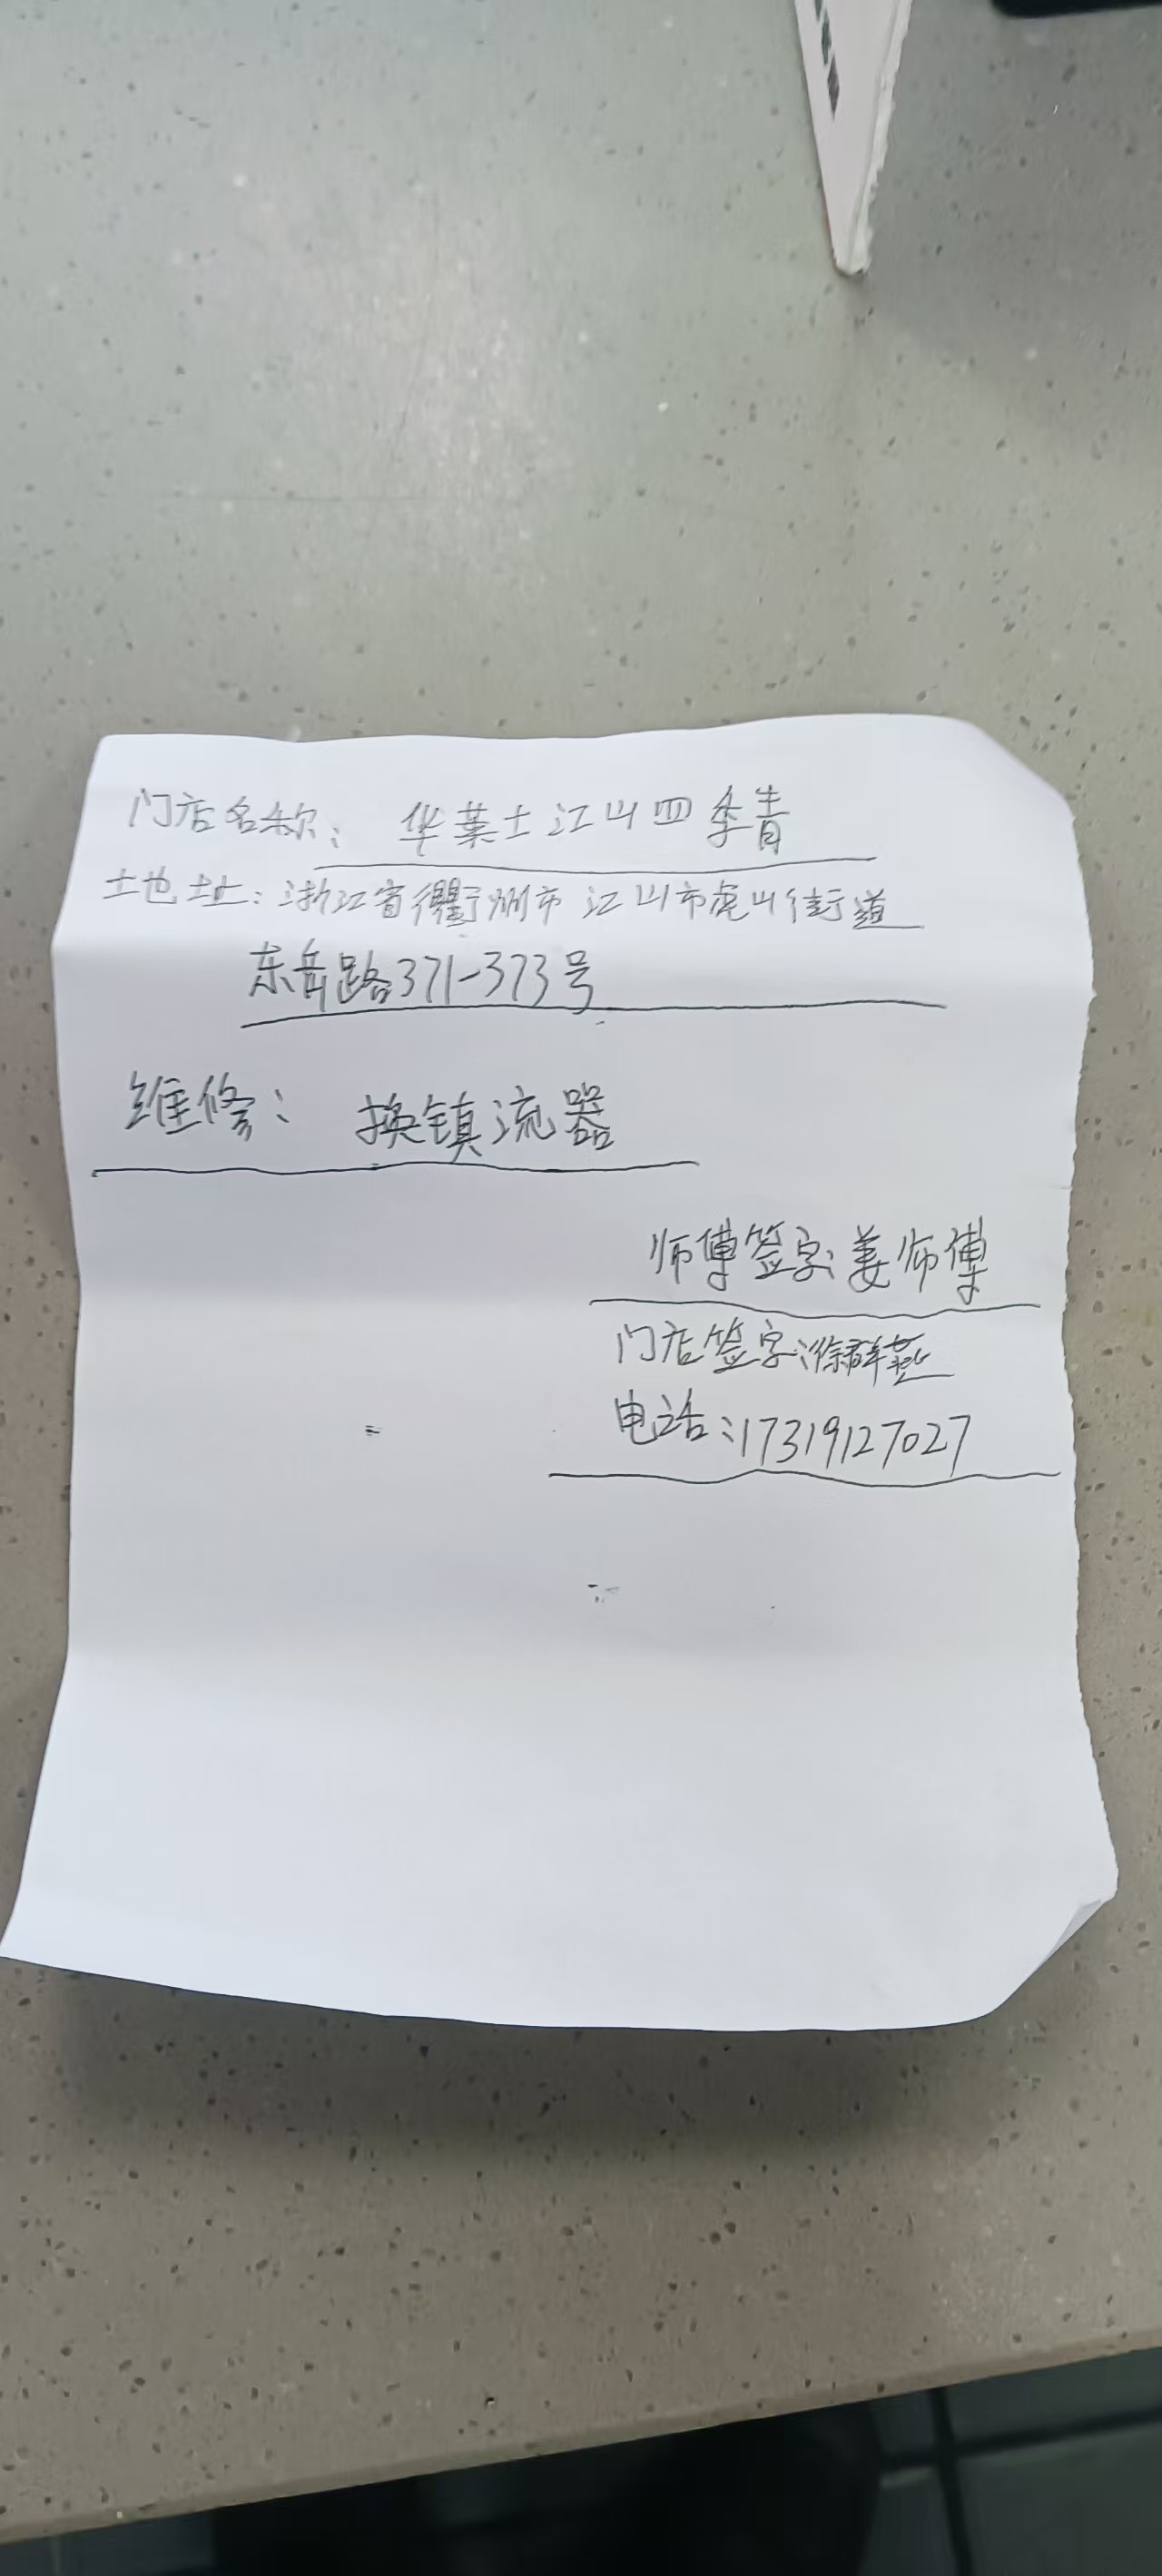 门店名称：华莱士江山四季青
地址：浙江省衢州市江山市虎山街道
东岳路371-373号
维修：换镇流器
师傅签字：姜师傅
门店签字：徐群燕
电话：17319127027